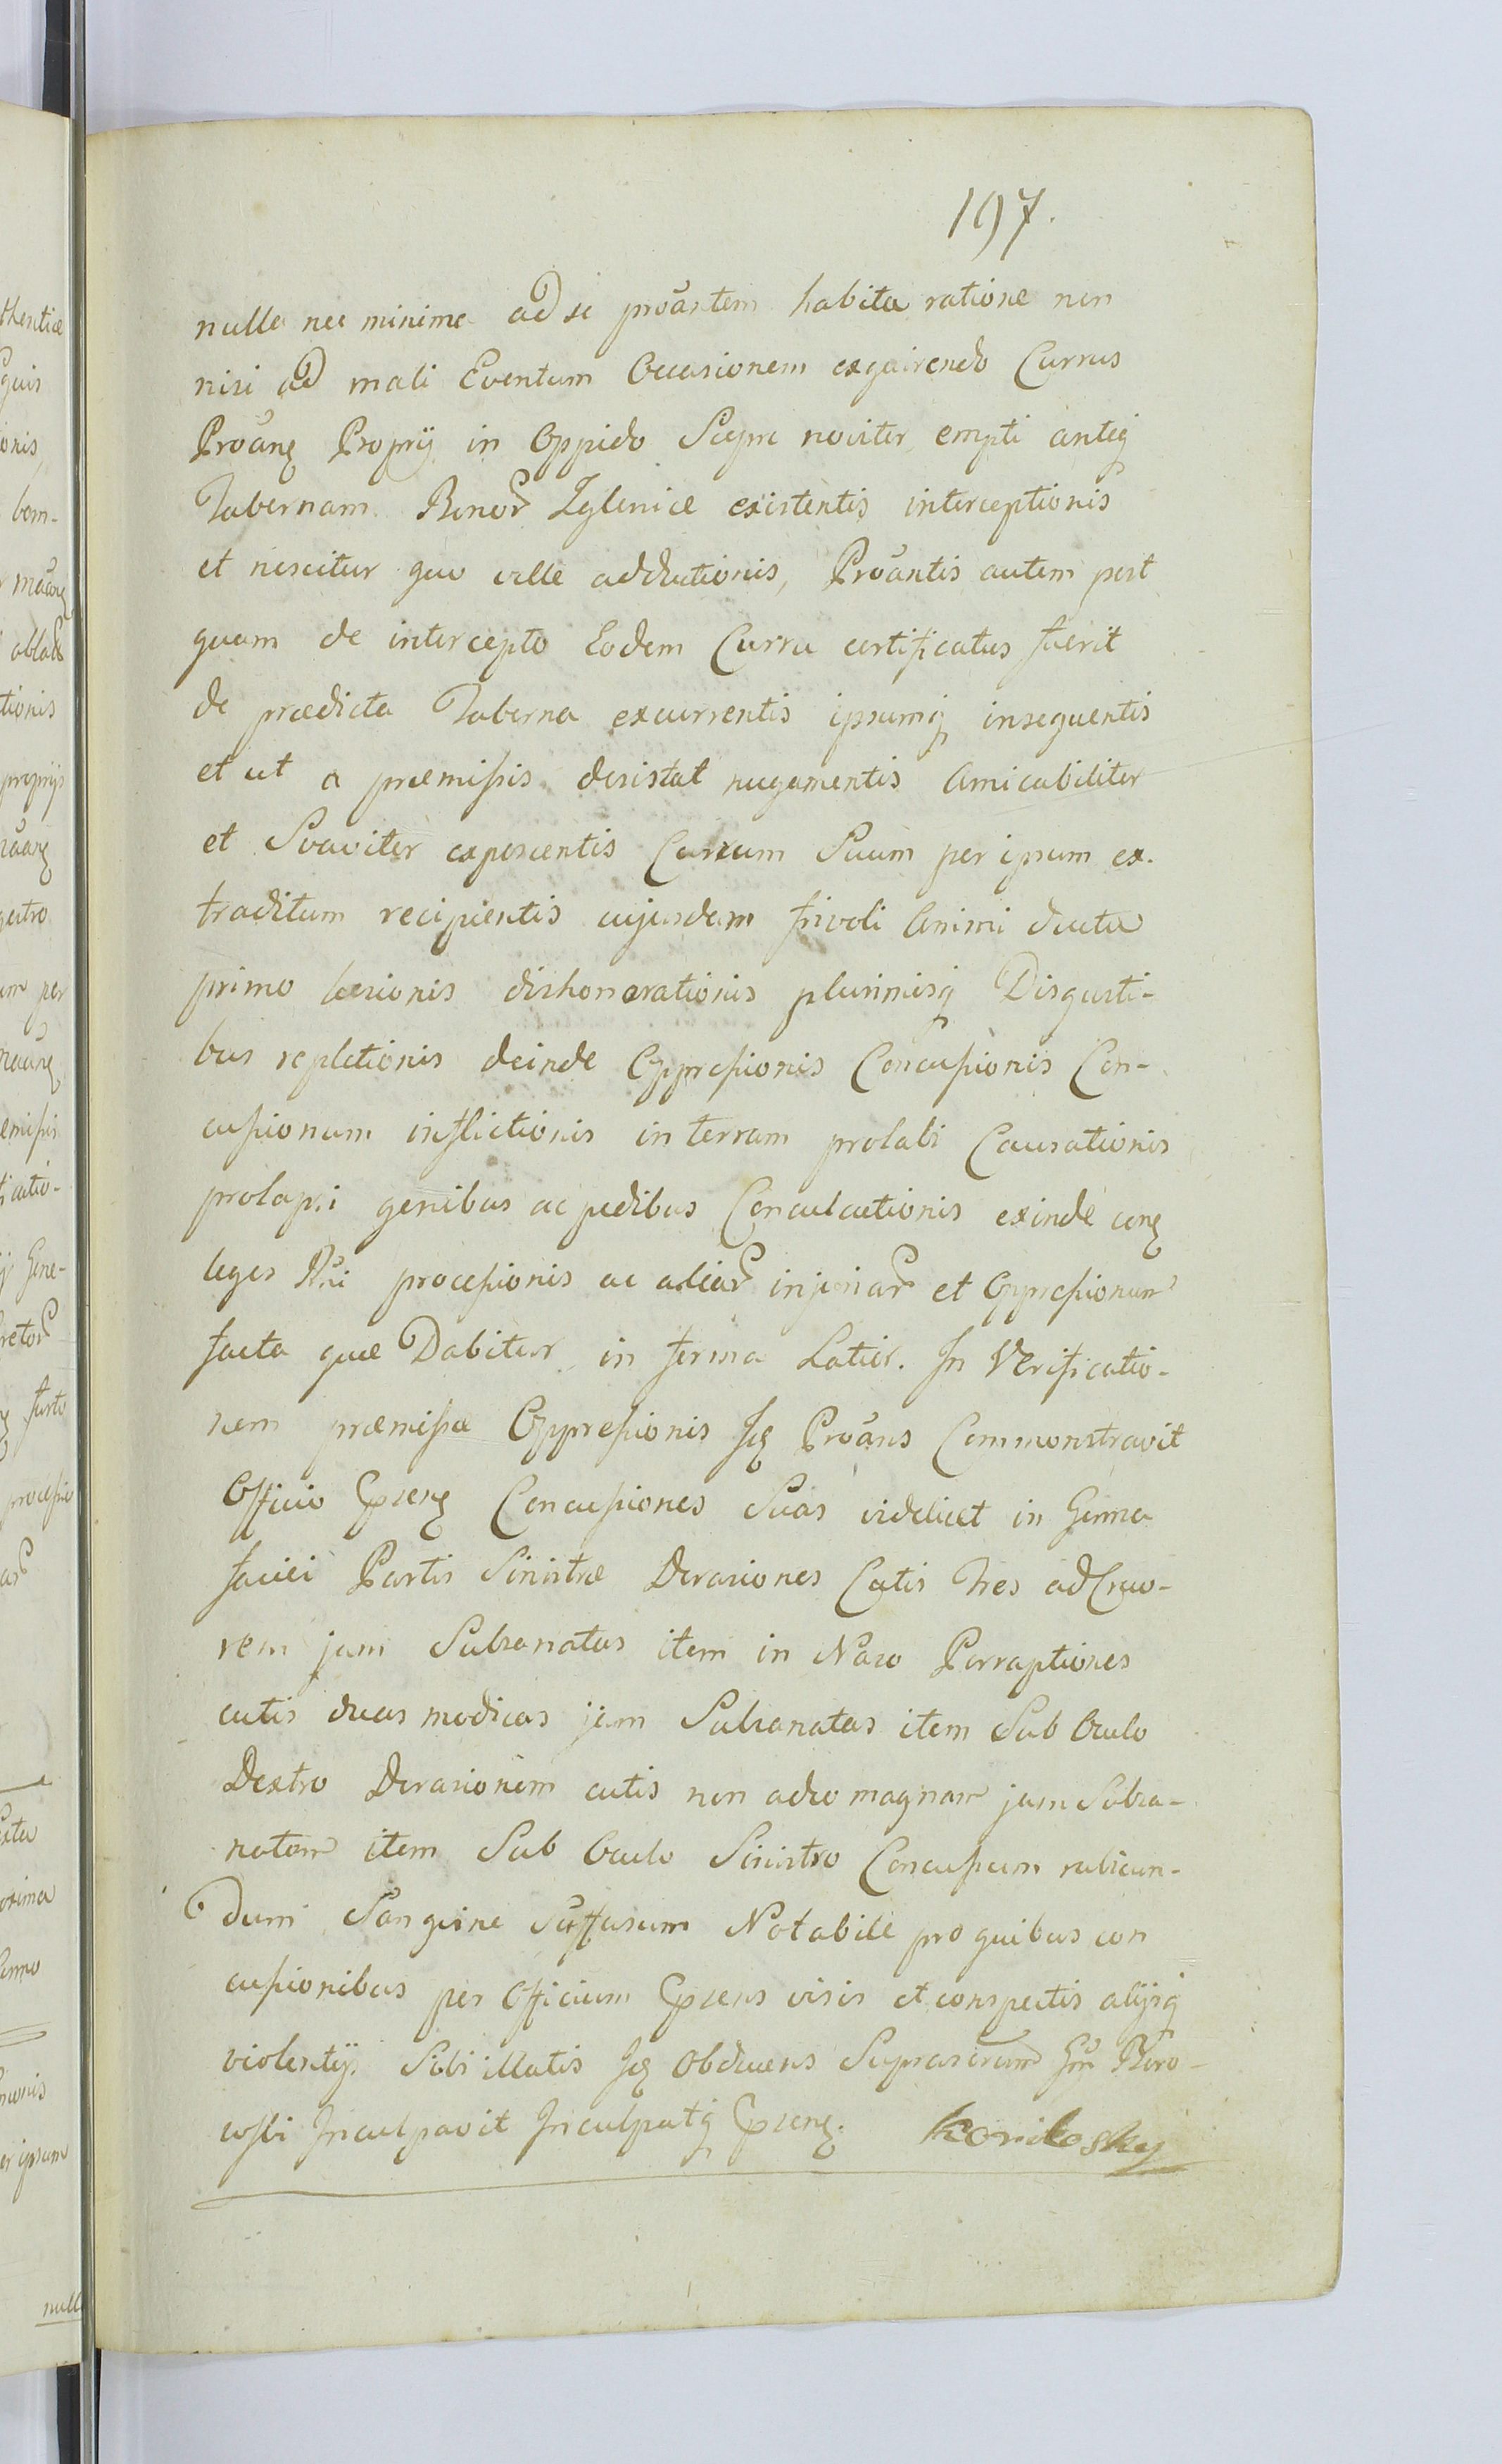 197.
nulla nec minima ad se proãntem habita ratione non
nisi ad mali Eventum Occasionem exquirendo Currus
Proãnq Proprij in Oppido Sieprc noviter empti anteq
Tabernam Bonor Iglenice existentis interceptionis
et nescitur quo velle adductionis, Proãntis autem post
quam de intercepto Eodem Curru certificatus fuerit
de prædicta Taberna excurrentis ipsumq insequentis
et ut a præmissis desistat nugamentis Amicabiliter
et Svaviter exposcentis Currum Suum per ipsum ex-
traditum recipientis cujusdam frivoli Animi ducta
primo læsionis dishonorationis plurimisq Disgusti-
bus repletionis deinde Oppressionis Concussionis Con-
cussionum inflictionis in terram prolabi Causationis
prolapsi genibus ac pedibus Conculcationis exinde conq
leges Rni processionis ac aliar injuriar et Oppressionum
facta quæ Dabitur in forma Latior. In Verificatio-
nem præmissæ Oppressionis Iq Proãns Commonstravit
Officio Cpsenq Concussiones Suas videlicet in Genna
faciei Partis Sinistræ Derasiones Cutis Tres ad Cruo-
rem jam Subsanatas item in Naso Perraptiones
cutis duas modicas jam Subsanatas item Sub Oculo
Dextro Derasionem cutis non adeo magnam jam Subsa-
natam item Sub Oculo Sinistro Concussum rubicun-
dum Sanguine Suffusum Notabile pro quibus con
cussionibus per Officium Cpsens visis et conspectis alijsq
violentijs Sibi illatis Iq Obducens Suprascrum Gm
Inculpavit Inculpatq Cpsenq. Konilosky
null